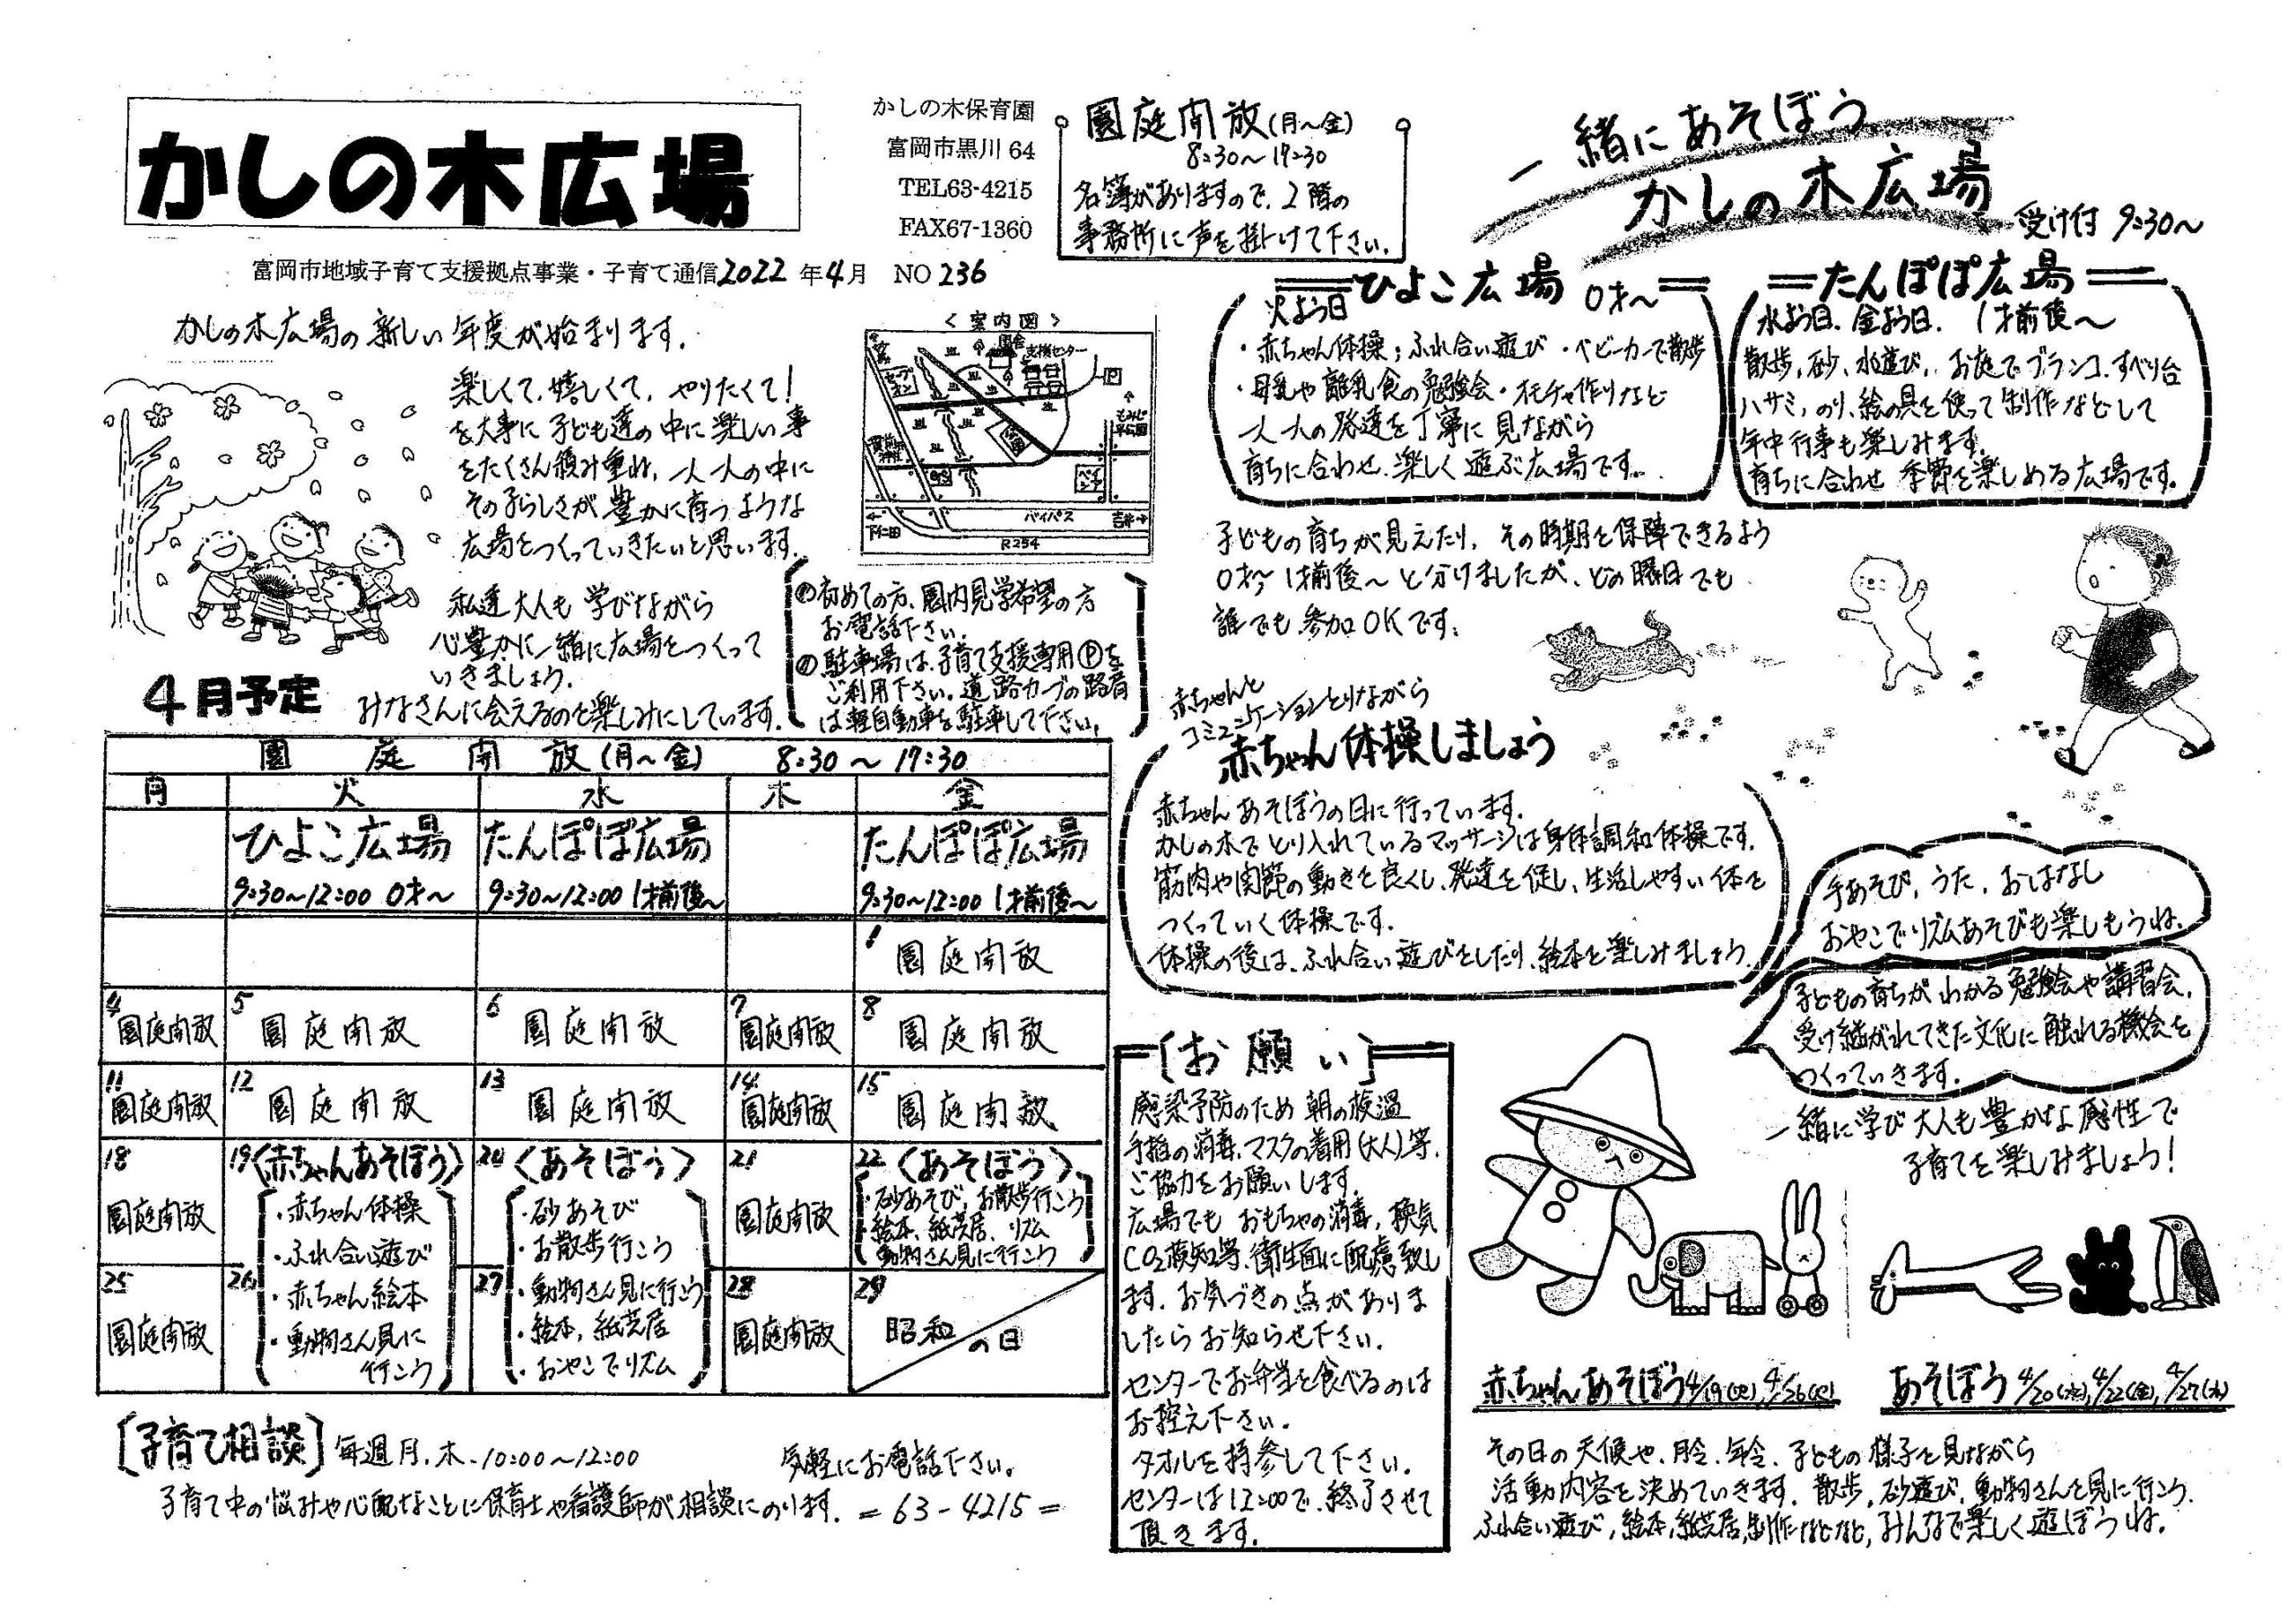 かしの木広場
かしの木保育園
富岡市黒川 64
TEL63-4215
FAX67-1360
富岡市地域子育て支援拠点事業・子育て通信2022 年4月 NO 236
園庭開放(月〜金)
8:30〜17:30
名簿がありますので、2階の
事務所に声を掛けて下さい.
かしの木広場の新しい年度が始まります.
楽しくて、嬉しくて、やりたくて!
を大事に子ども達の中に楽しい事
をたくさん積み重ね、一人一人の中に
その子らしさが豊かに育つような
広場をつくっていきたいと思います.
私達大人も学びながら
心豊かに一緒に広場をつくって
いきましょう.
みなさんに会えるのを楽しみにしています.
<案内図>
支援センター
P
バイパス
下仁田
吉井→
R254
初めての方、園内見学希望の方
お電話下さい.
駐車場は、子育て支援専用Ⓟを
ご利用下さい。道路カーブの路肩
は軽自動車を駐車して下さい.
4月予定
園庭開放(月〜金) 8:30〜17:30
月 火 水 木 金
ひよこ広場 たんぽぽ広場 たんぽぽ広場
9:30〜12:00 0才〜 9:30〜12:00 1才前後〜 9:30〜12:00 1才前後〜
1 園庭開放
4 園庭開放 5 園庭開放 6 園庭開放 7 園庭開放 8 園庭開放
11 園庭開放 12 園庭開放 13 園庭開放 14 園庭開放 15 園庭開放
18 園庭開放
19 <赤ちゃんあそぼう>
26
・赤ちゃん体操
・ふれ合い遊び
・赤ちゃん絵本
・動物さん見に
行こう
20 <あそぼう>
27
・砂あそび
・お散歩行こう
・動物さん見に行こう
・絵本、紙芝居
・おやこでリズム
21 園庭開放
22 <あそぼう>
・砂あそび、お散歩行こう
・絵本、紙芝居、リズム
動物さん見に行こう
25 園庭開放
28 園庭開放
29 昭和の日
[子育て相談] 毎週月、木、10:00〜12:00 気軽にお電話下さい。
子育て中の悩みや心配なことに保育士や看護師が相談にのります. =63-4215=
一緒にあそぼう
かしの木広場 受け付 9:30〜
ひよこ広場 0才〜
火よう日
・赤ちゃん体操;ふれ合い遊び・ベビーカーで散歩
・母乳や離乳食の勉強会・オモチャ作りなど
一人一人の発達を丁寧に見ながら
育ちに合わせ、楽しく遊ぶ広場です.
たんぽぽ広場
水よう日、金よう日. 1才前後〜
散歩、砂、水遊び、お庭でブランコ、すべり台
ハサミ、のり、絵の具を使って制作などして
年中行事も楽しみます.
育ちに合わせ季節を楽しめる広場です.
子どもの育ちが見えたり、その時期を保障できるよう
0才〜 1才前後〜と分けましたが、どの曜日でも
誰でも参加OKです.
赤ちゃんと
コミュニケーションとりながら
赤ちゃん体操しましょう
赤ちゃんあそぼうの日に行っています.
かしの木でとり入れているマッサージは身体調和体操です.
筋肉や関節の動きを良くし、発達を促し、生活しやすい体を
つくっていく体操です.
体操の後は、ふれ合い遊びをしたり、絵本を楽しみましょう.
手あそび、うた、おはなし
おやこでリズムあそびも楽しもうね.
子どもの育ちがわかる勉強会や講習会、
受け継がれてきた文化に触れる機会を
つくっていきます.
一緒に学び大人も豊かな感性で
子育てを楽しみましょう!
[お願い]
感染予防のため朝の検温
手指の消毒、マスクの着用(大人)等、
ご協力をお願いします.
広場でもおもちゃの消毒、換気
CO2検知等、衛生面に配慮致し
ます. お気づきの点がありま
したらお知らせ下さい.
センターでお弁当を食べるのは
お控え下さい.
タオルを持参して下さい.
センターは12:00で、終了させて
頂きます.
赤ちゃんあそぼう4/19(火), 4/26(火) あそぼう4/20(水), 4/22(金), 4/27(水)
その日の天候や、月令、年令、子どもの様子を見ながら
活動内容を決めていきます. 散歩、砂遊び、動物さんを見に行こう、
ふれ合い遊び、絵本、紙芝居、制作などなど、みんなで楽しく遊ぼうね.